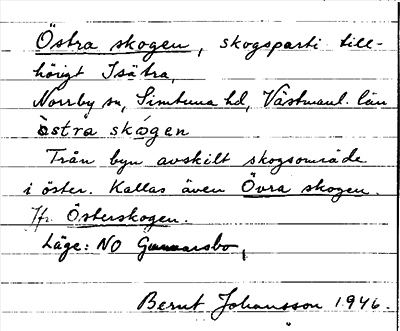 Östra skogen, skogsparti till-
hörigt Isätra,
Norrby sn, Simtuna hd, Västmanl. län
östra skógen
Från byn avskilt skogsområde
i öster. Kallas även Övra skogen.
Jfr Österskogen.
Läge: NO Gunnarsbo,
Bernt Johansson 1946.